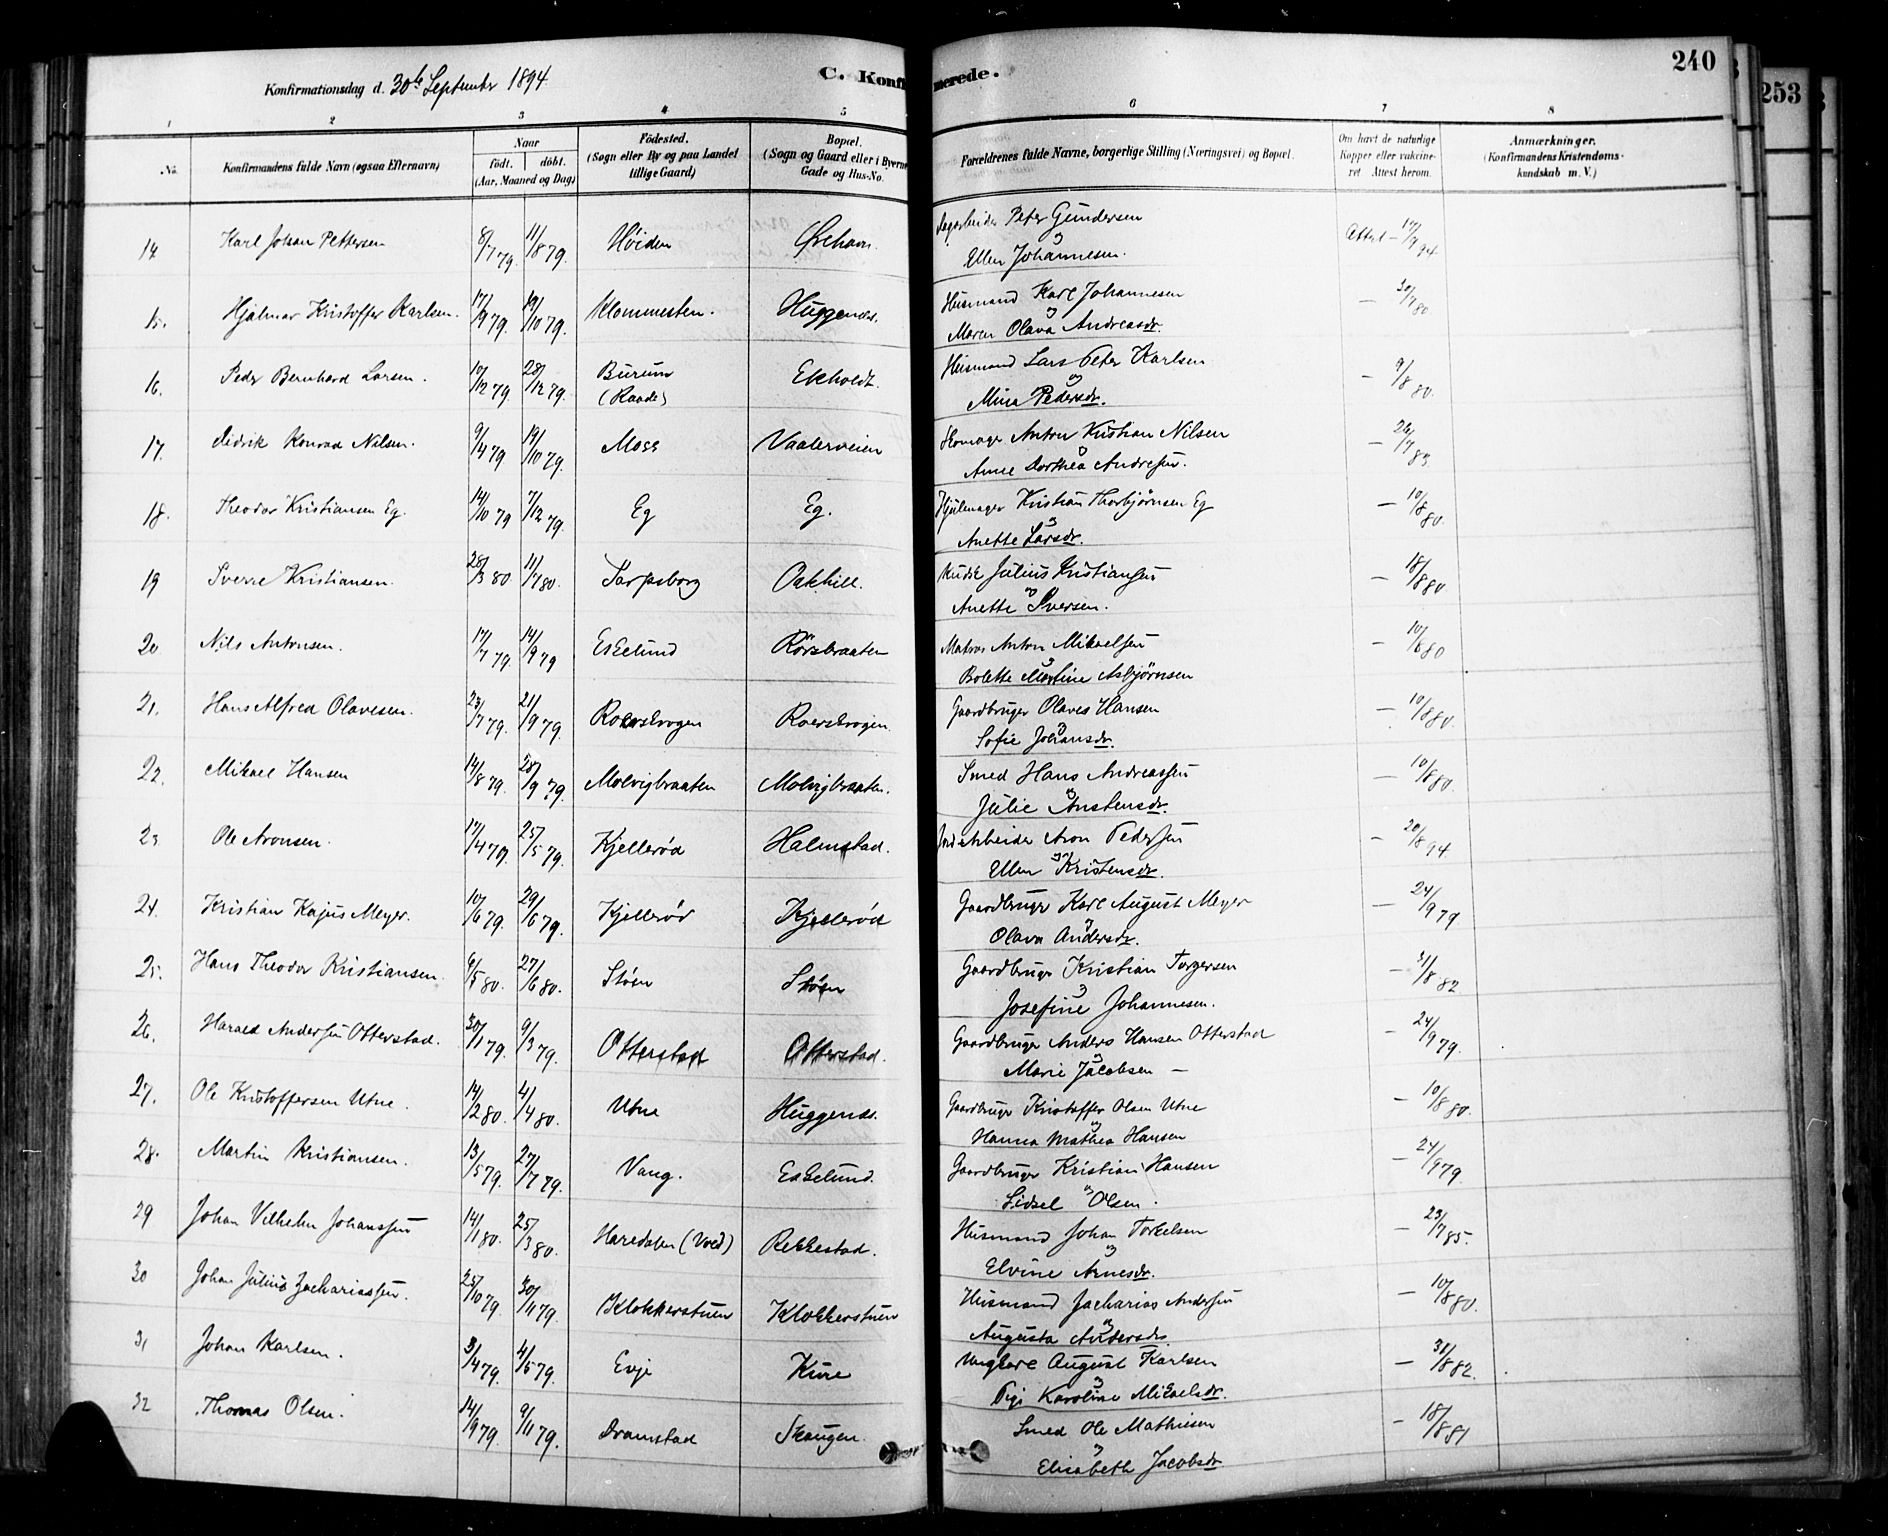 240
253
Konfirmationsdag d. 30te September 1894
C. Konfi
merede.
1 2 3 4 5 6 7 8
No.
Konfirmandens fulde Navn (ogsaa Efternavn)
Naar
født. døbt.
(Aar, Maaned og Dag)
Fødested.
(Sogn eller By og paa Landet
tillige Gaard)
Bopæl.
(Sogn og Gaard eller i Byerne
Gade og Hus-No.
Forældrenes fulde Navne, borgerlige Stilling (Næringsvei) og Bopæl.
Om havt de naturlige
Kopper eller vakcine-
ret Attest herom.
Anmærkninger.
(Konfirmandens Kristendoms-
kundskab m. V.)
14 Karl Johan Pettersen 8/7 79. 11/8 79. Høiden Ørehavn. Peter Gundersen Attest – 17/9 94.
Ellen Johannesen.
15. Hjalmar Kristoffer Karlsen. 17/9 79. 19/10 79. Klommesten. Huggenæs. Husmand Karl Johannesen – 30/7 80.
og
Maren Olava Andreasdr.
16. Peder Bernhard Larsen. 10/12 79. 28/12 79. Burum (Raade) Ekholdt. Husmand Lars Peter Karlsen – 9/8 80.
og
Mina Pedersdr.
17. Didrik Konrad Nilsen. 9/4 79. 19/10 79. Moss Vaalerveien Skomager Anton Kristian Nilsen – 26/7 83.
og
Anne Dorthea Andresen.
18. Theodor Kristiansen Eg. 14/10 79 7/12 79. Eg Eg. Hjulmager Kristian Thorbjørnsen Eg – 10/8 80.
og
Anette Larsdr.
19 Sverre Kristiansen. 28/3 80 11/7 80. Sarpsborg Oakhill. Kudsk Julius Kristiansen – 18/8 80.
og
Anette Iversen.
20 Nils Antonsen. 17/7 79. 14/9 79 Eskelund Rörsbraaten Matros Anton Mikaelsen – 10/8 80
og
Bolette Martine Asbjørnsen
21. Hans Alfred Olavesen. 23/7 79. 21/9 79. Roerskrogen Roerskrogen. Gaardbruger Olaves Hansen – 10/8 80.
og
Sofie Johansdr.
22. Mikael Hansen 14/8 79. 28/9 79. Molvigbraaten Molvigbraaten. Smed Hans Andreassen – 10/8 80.
og
Julie Anstensdr.
23 Ole Aronsen. 17/4 79. 25/5 79. Kjellerød Halmstad. Arbeider Aron Pedersen – 20/8 94.
og
Ellen Kristensdr.
24. Kristian Kajus Meyer. 10/6 79. 29/6 79. Kjellerød Kjellerød Gaardbruger Karl August Meyer – 24/9 79.
og
Olava Andersdr.
25. Hans Theodor Kristiansen. 6/5 80. 27/6 80. Støen Støen Gaardbruger Kristian Torgersen – 31/8 82
og
Josefine Johannesen.
26. Harald Andersen Otterstad. 30/1 79. 9/3 79. Otterstad Otterstad. Gaardbruger Anders Hansen Otterstad – 24/9 79.
og
Marie Jacobsen –
27. Ole Kristoffersen Utne. 14/2 80. 4/4 80. Utne Huggenæs. Gaardbruger Kristoffer Olsen Utne – 10/8 80.
og
Hanna Mathea Hansen
28. Martin Kristiansen. 13/5 79. 27/7 79. Vang. Eskelund. Gaardbruger Kristian Hansen – 24/9 79.
og
Sidsel Olsen.
29 Johan Vilhelm Johanssen 14/1 80. 25/3 80. Haredalen (Vaal) Rekkestad. Husmand Johan Torkelsen – 23/7 85.
og
Elvine Arnesdr.
30 Johan Julius Zachariassen. 25/10 79. 30/11 79. Klokkerstuen Klokkerstuen Husmand Zacharias Andersen – 10/8 80.
og
Augusta Andersdr.
31 Johan Karlsen. 3/4 79. 4/5 79. Evje Kure Ungkarl August Karlsen – 31/8 82.
og
Pige Karoline Mikaelsdr.
32 Thomas Olsen. 14/9 79. 9/11 79. Dramstad Skaugen. Smed Ole Mathiesen – 18/8 81
og
Elisabeth Jacobsdr